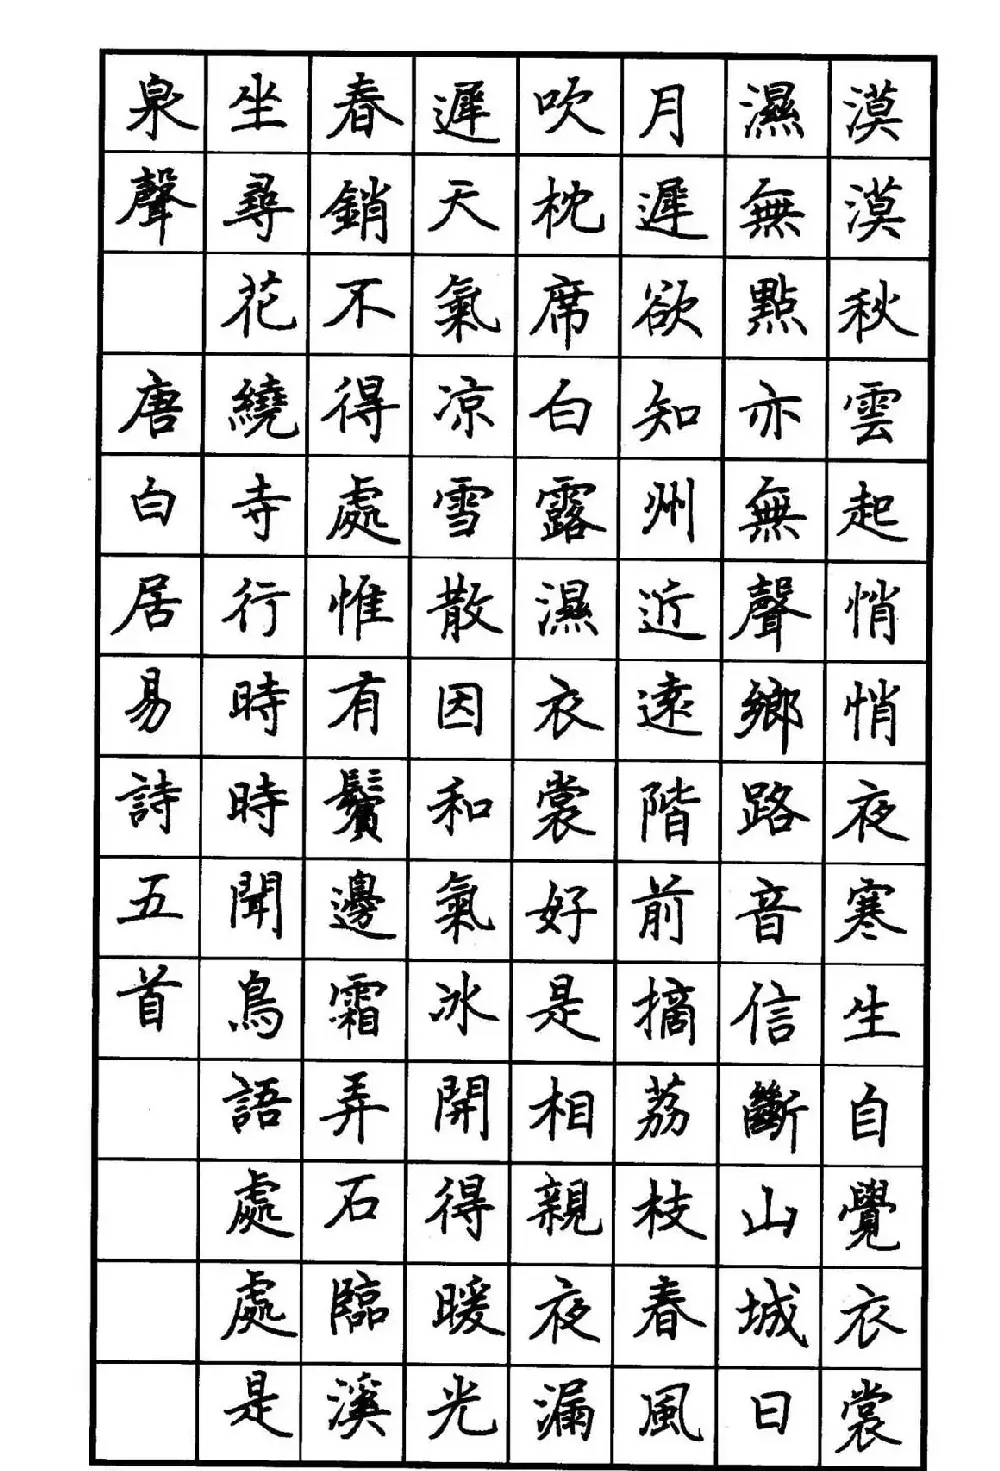 漠漠秋雲起悄悄夜寒生自覺衣裳
濕無點亦無聲鄉路音信斷山城日
月遲欲知州近遠階前摘荔枝春風
吹枕席白露濕衣裳好是相親夜漏
遲天氣凉雪散因和氣冰開得暖光
春銷不得處惟有鬢邊霜弄石臨溪
坐尋花繞寺行時時聞鳥語處處是
泉聲 唐白居易詩五首